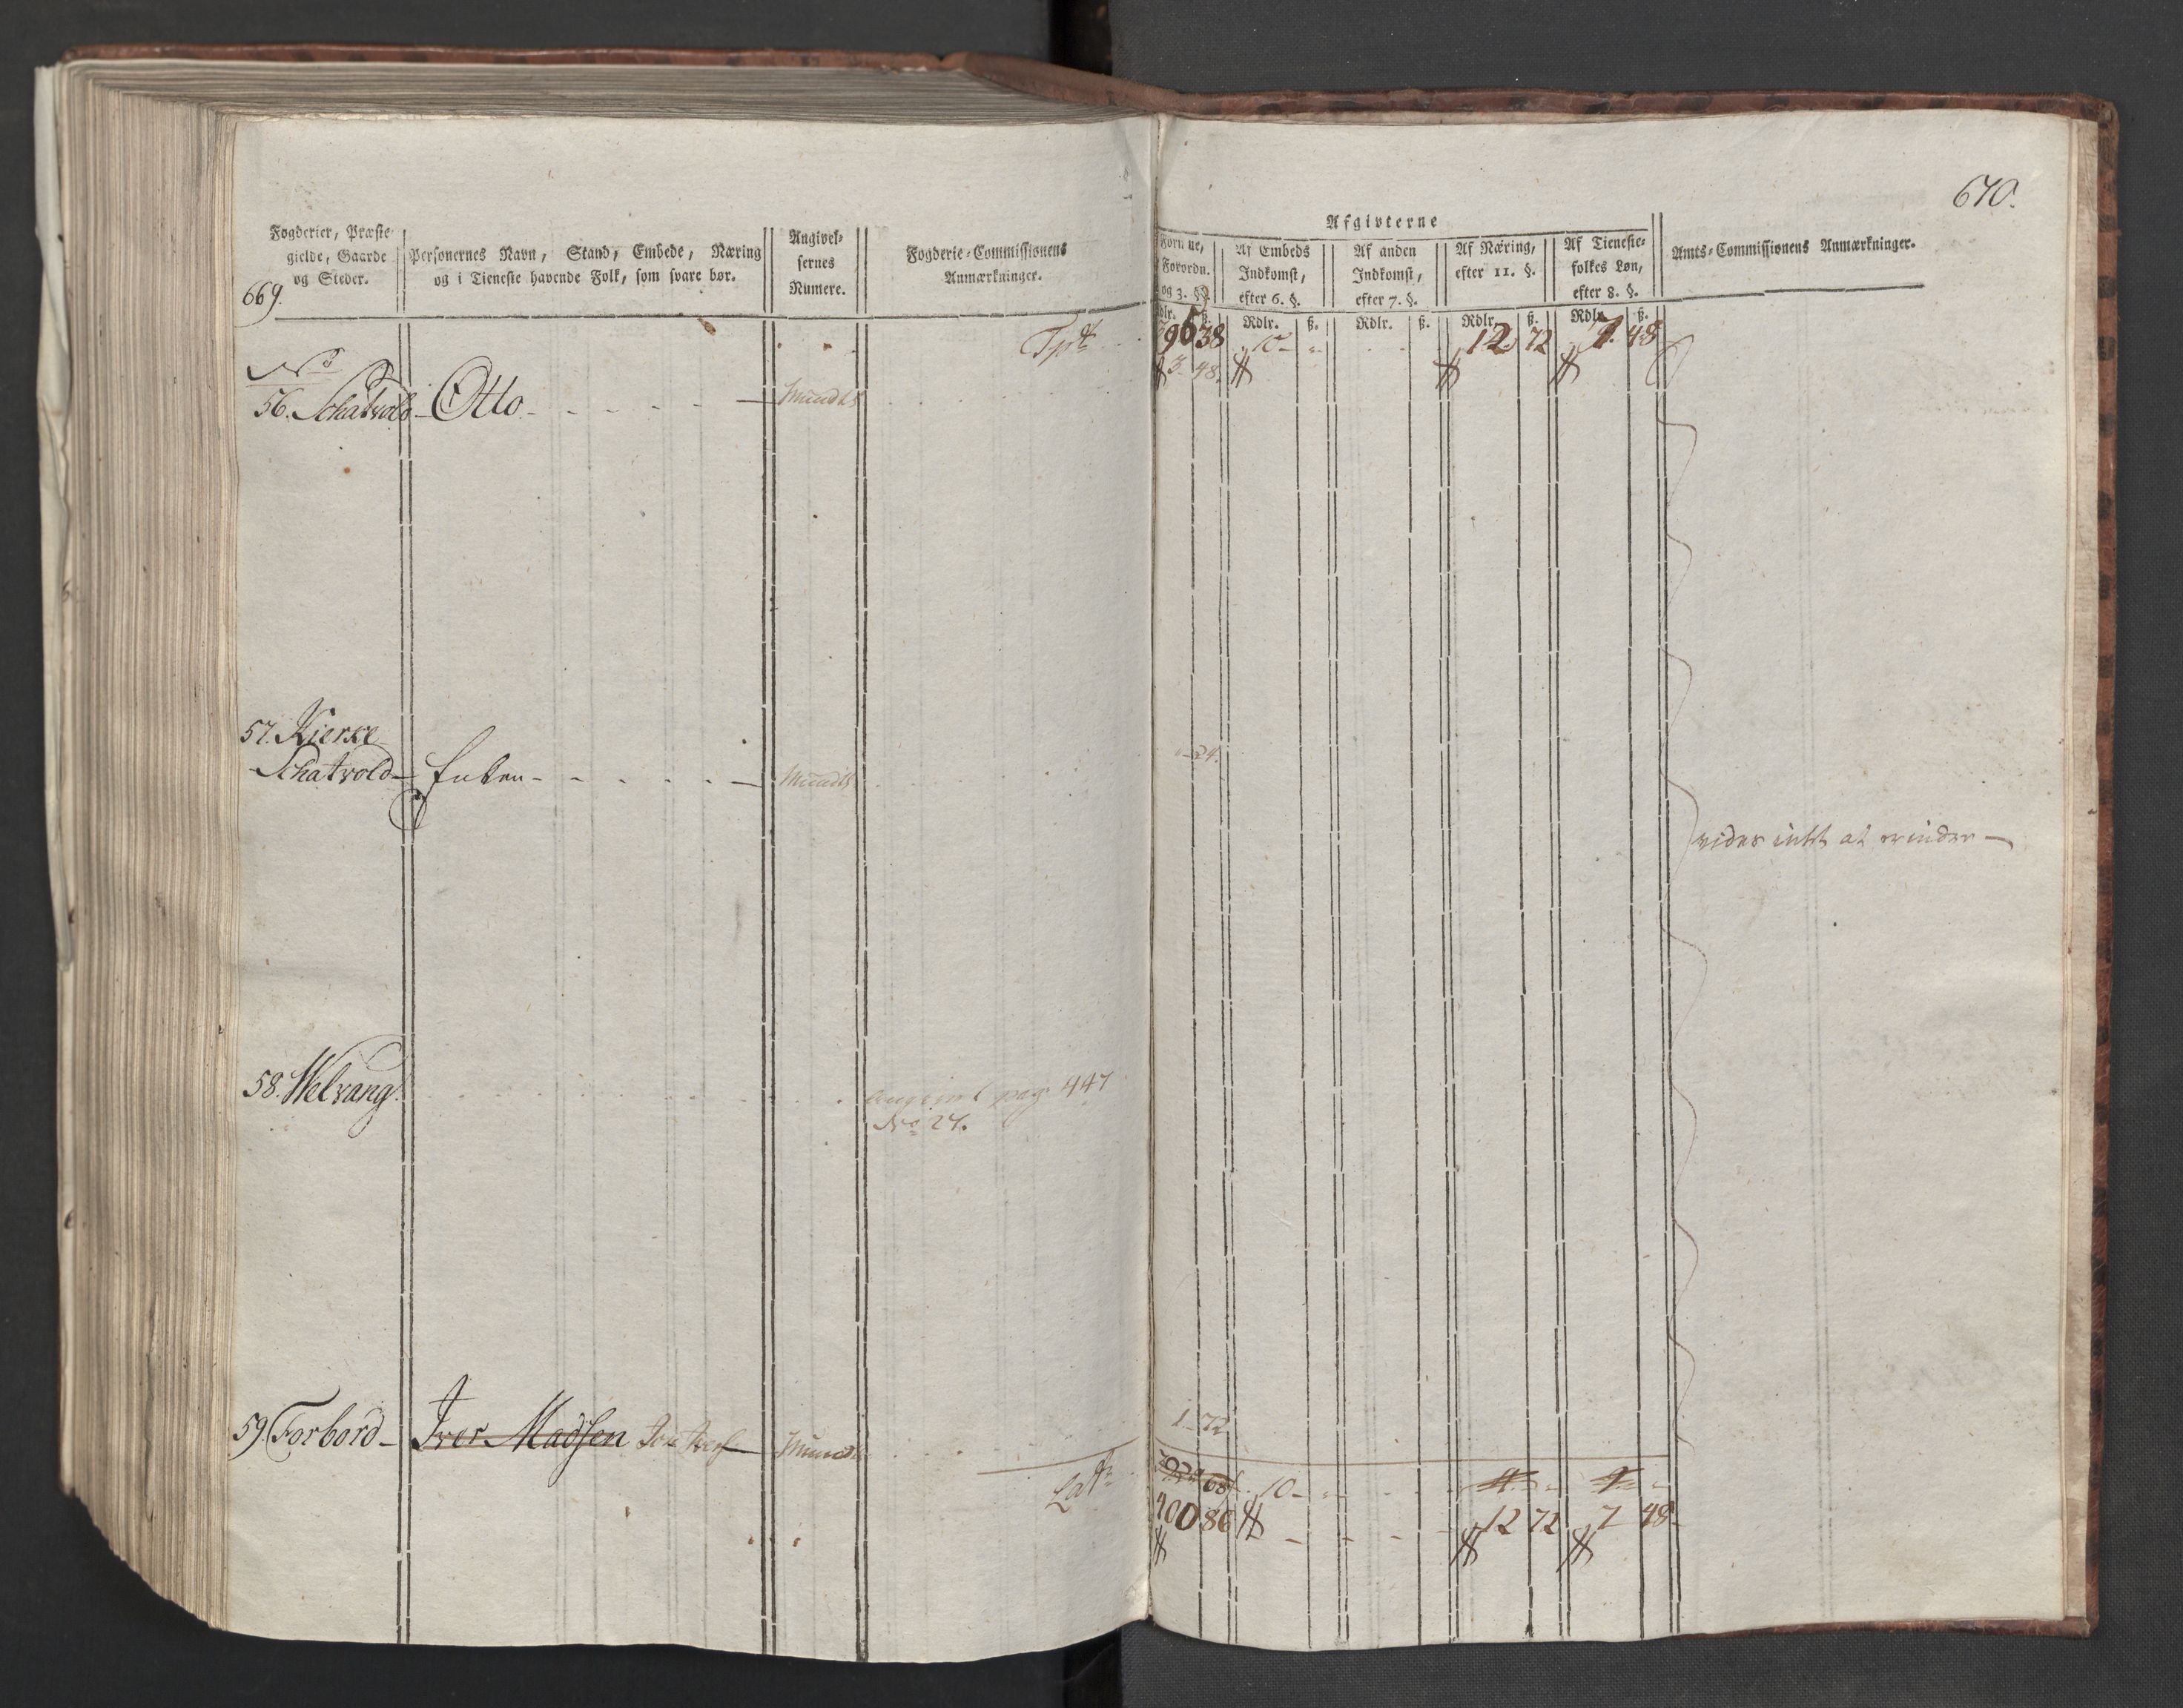 669.
Fogderier, Præste-
gielde, Gaarde
og Steder.
Personernes Navn, Stand, Embede, Næring
og i Tieneste havende Folk, som svare bør.
Angivel-
sernes
Numere.
Fogderie-Commissionens
Anmærkninger.
Tpt
No
56. Schatvold - Otto - Mundtl
57. Kierke
Schatvold - Enken - Mundtl
58. Welvang
Angivet pag. 447
No 27.
59. Forbord - Iver Madsen Mundtl
Lat
670.
Afgivterne
Forordn.
og 3. §§.
Af Embeds
Indkomst,
efter 6. §.
Af anden
Indkomst,
efter 7. §.
Af Næring,
efter 11. §.
Af Tieneste-
folkes Løn,
efter 8. §.
Amts-Commissionens Anmærkninger.
Rdlr. ß. Rdlr. ß. Rdlr. ß. Rdlr. ß.
38 10 - 12 72 7 48
3 48
- 24.
vides intet at erindre -
1 72
10 -
100 86 12 72 7 48